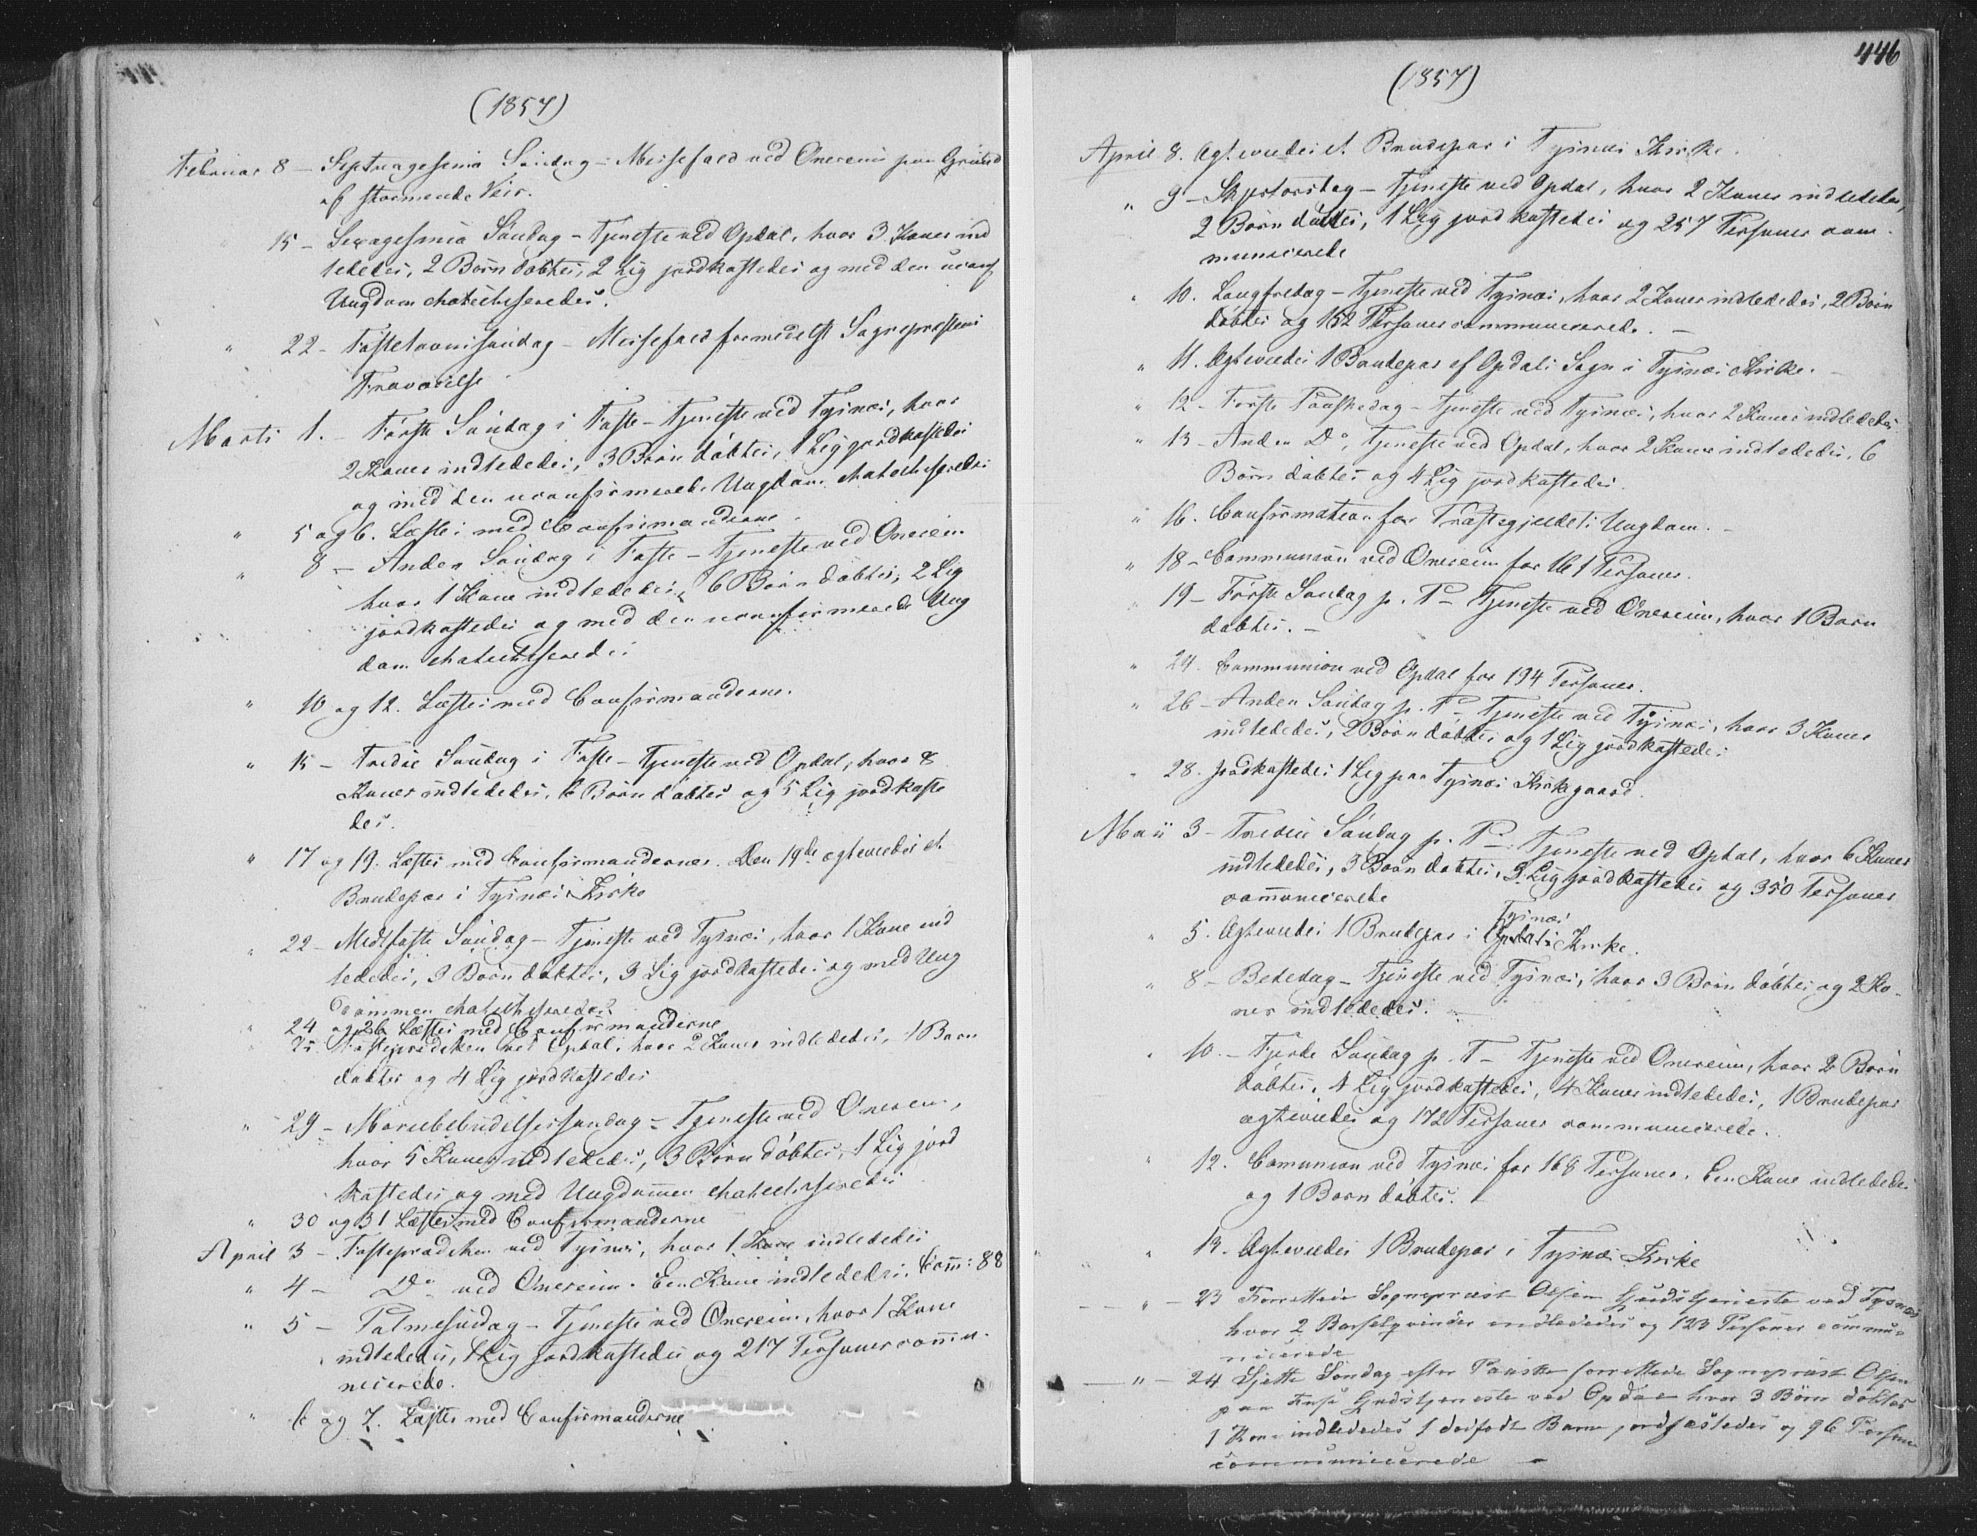 (1857)
Februar 8 – Septuagesima Søndag – Messefald ved Onereim paa Grund
af stormende Veir.
15 – Sexagesima Søndag – Tjeneste ved Opdal, hvor 3 Koner ind
lededes, 2 Børn døbtes, 2 Lig jordkastedes og med den uconf
Ungdom chatechiseredes.
" 22 – Fastelavnssøndag – Messefald formedelst Sognepræstens
Fraværelse
Marts 1. – Første Søndag i Faste – Tjeneste ved Tysnæs, hvor
2 Koner indlededes, 3 Børn døbtes, 1 Lig jordkastedes
og med den uconfirmerede Ungdom chatechiseredes
" 5 og 6. Læstes med Confirmanderne.
" 8 – Anden Søndag i Faste – Tjeneste ved Onereim
hvor 1 Kone indlededes, 6 Børn døbtes, 2 Lig
jordkastedes og med den uconfirmerede Ung
dom chatechiseredes
" 10 og 12. Læstes med Confirmanderne.
" 15 – Tredie Søndag i Faste – Tjeneste ved Opdal, hvor 8
Koner indlededes, 6 Børn døbtes og 5 Lig jordkaste
des.
" 17 og 19. Læstes med Confirmanderne. Den 19de ægteviedes et
Brudepar i Tysnæs Kirke
" 22 – Midtfaste Søndag – Tjeneste ved Tysnæs, hvor 1 Kone ind
lededes, 3 Børn døbtes, 3 Lig jordkastedes og med Ung
dommen chatechiseredes
" 24 og 26 Læstes med Confirmanderne
" 25. Fasteprædiken ved Opdal, hvor 2 Koner indlededes, 1 Barn
døbtes og 4 Lig jordkastedes
" 29 – Mariæbebudelsessøndag – Tjeneste ved Onereim,
hvor 5 Koner indlededes, 3 Børn døbtes, 1 Lig jord
kastedes og med Ungdommen chatechiseredes
" 30 og 31 Læstes med Confirmanderne
April 3 – Fasteprædiken ved Tysnæs, hvor 1 Kone indlededes
" 4 – Do ved Onereim. Een Kone indlededes. Com: 88
" 5 – Palmesøndag – Tjeneste ved Onereim, hvor 1 Kone
indlededes, 1 Lig jordkastedes og 217 Personer commu-
nicerede.
" 6 og 7. Læstes med Confirmanderne
446
(1857)
April 8. Ægteviedes et Brudepar i Tysnæs Kirke.
" 9 – Skjertorsdag – Tjeneste ved Opdal, hvor 2 Koner indlededes,
2 Børn døbtes, 1 Lig jordkastedes og 257 Personer com-
municerede
" 10. Langfredag – Tjeneste ved Tysnæs, hvor 2 Koner indlededes, 2 Børn
døbtes og 152 Personer communicerede. –
" 11. Ægteviedes 1 Brudepar af Opdals Sogn i Tysnæs Kirke. –
" 12 – Første Paaskedag – Tjeneste ved Tysnæs, hvor 2 Koner indlededes
" 13 – Anden Do, Tjeneste ved Opdal, hvor 2 Koner indlededes, 6
Børn døbtes og 4 Lig jordkastedes.
" 16. Confirmation for Præstegjeldets Ungdom. –
" 18 – Communion ved Onereim for 161 Personer.
" 19 – Første Søndag p. P – Tjeneste ved Onereim, hvor 1 Barn
døbtes. –
" 24. Communion ved Opdal for 194 Personer.
" 26 – Anden Søndag p. P – Tjeneste ved Tysnæs, hvor 3 Koner
indlededes, 2 Børn døbtes og 1 Lig jordkastedes
" 28. Jordkastedes 1 Lig paa Tysnæs Kirkegaard.
Maii 3 – Tredie Søndag p. P – Tjeneste ved Opdal, hvor 6 Koner
indlededes, 3 Børn døbtes, 3 Lig jordkastedes og 350 Personer
communicerede
Tysnæs
" 5. Ægteviedes 1 Brudepar i Opdals Kirke.
" 8 – Bededag – Tjeneste ved Tysnæs, hvor 3 Børn døbtes og 2 Ko-
ner indlededes. –
" 10. – Fjerde Søndag p. P – Tjeneste ved Onereim, hvor 2 Børn
døbtes, 4 Lig jordkastedes, 4 Koner indlededes, 1 Brudepar
ægteviedes og 172 Personer communicerede.
" 12. Comunion ved Tysnæs for 168 Personer. Een Kone indlededes
og 1 Barn døbtes.
" 13. Ægteviedes 1 Brudepar i Tysnæs Kirke
– " – 23 Forrettede Sognepræst Olsen Gudstjeneste ved Tysnæs
hvor 2 Barselqvinder indlededes og 123 Personer commu-
nicerede
– " – 24 Sjette Søndag efter Paaske forrettede Sognepræst Olsen
paa Fuse Gudstjeneste ved Opdal hvor 3 Børn døbtes
1 Kone indlededes 1 dødfødt Barn jordfæstedes og 96 Personer
communicerede –